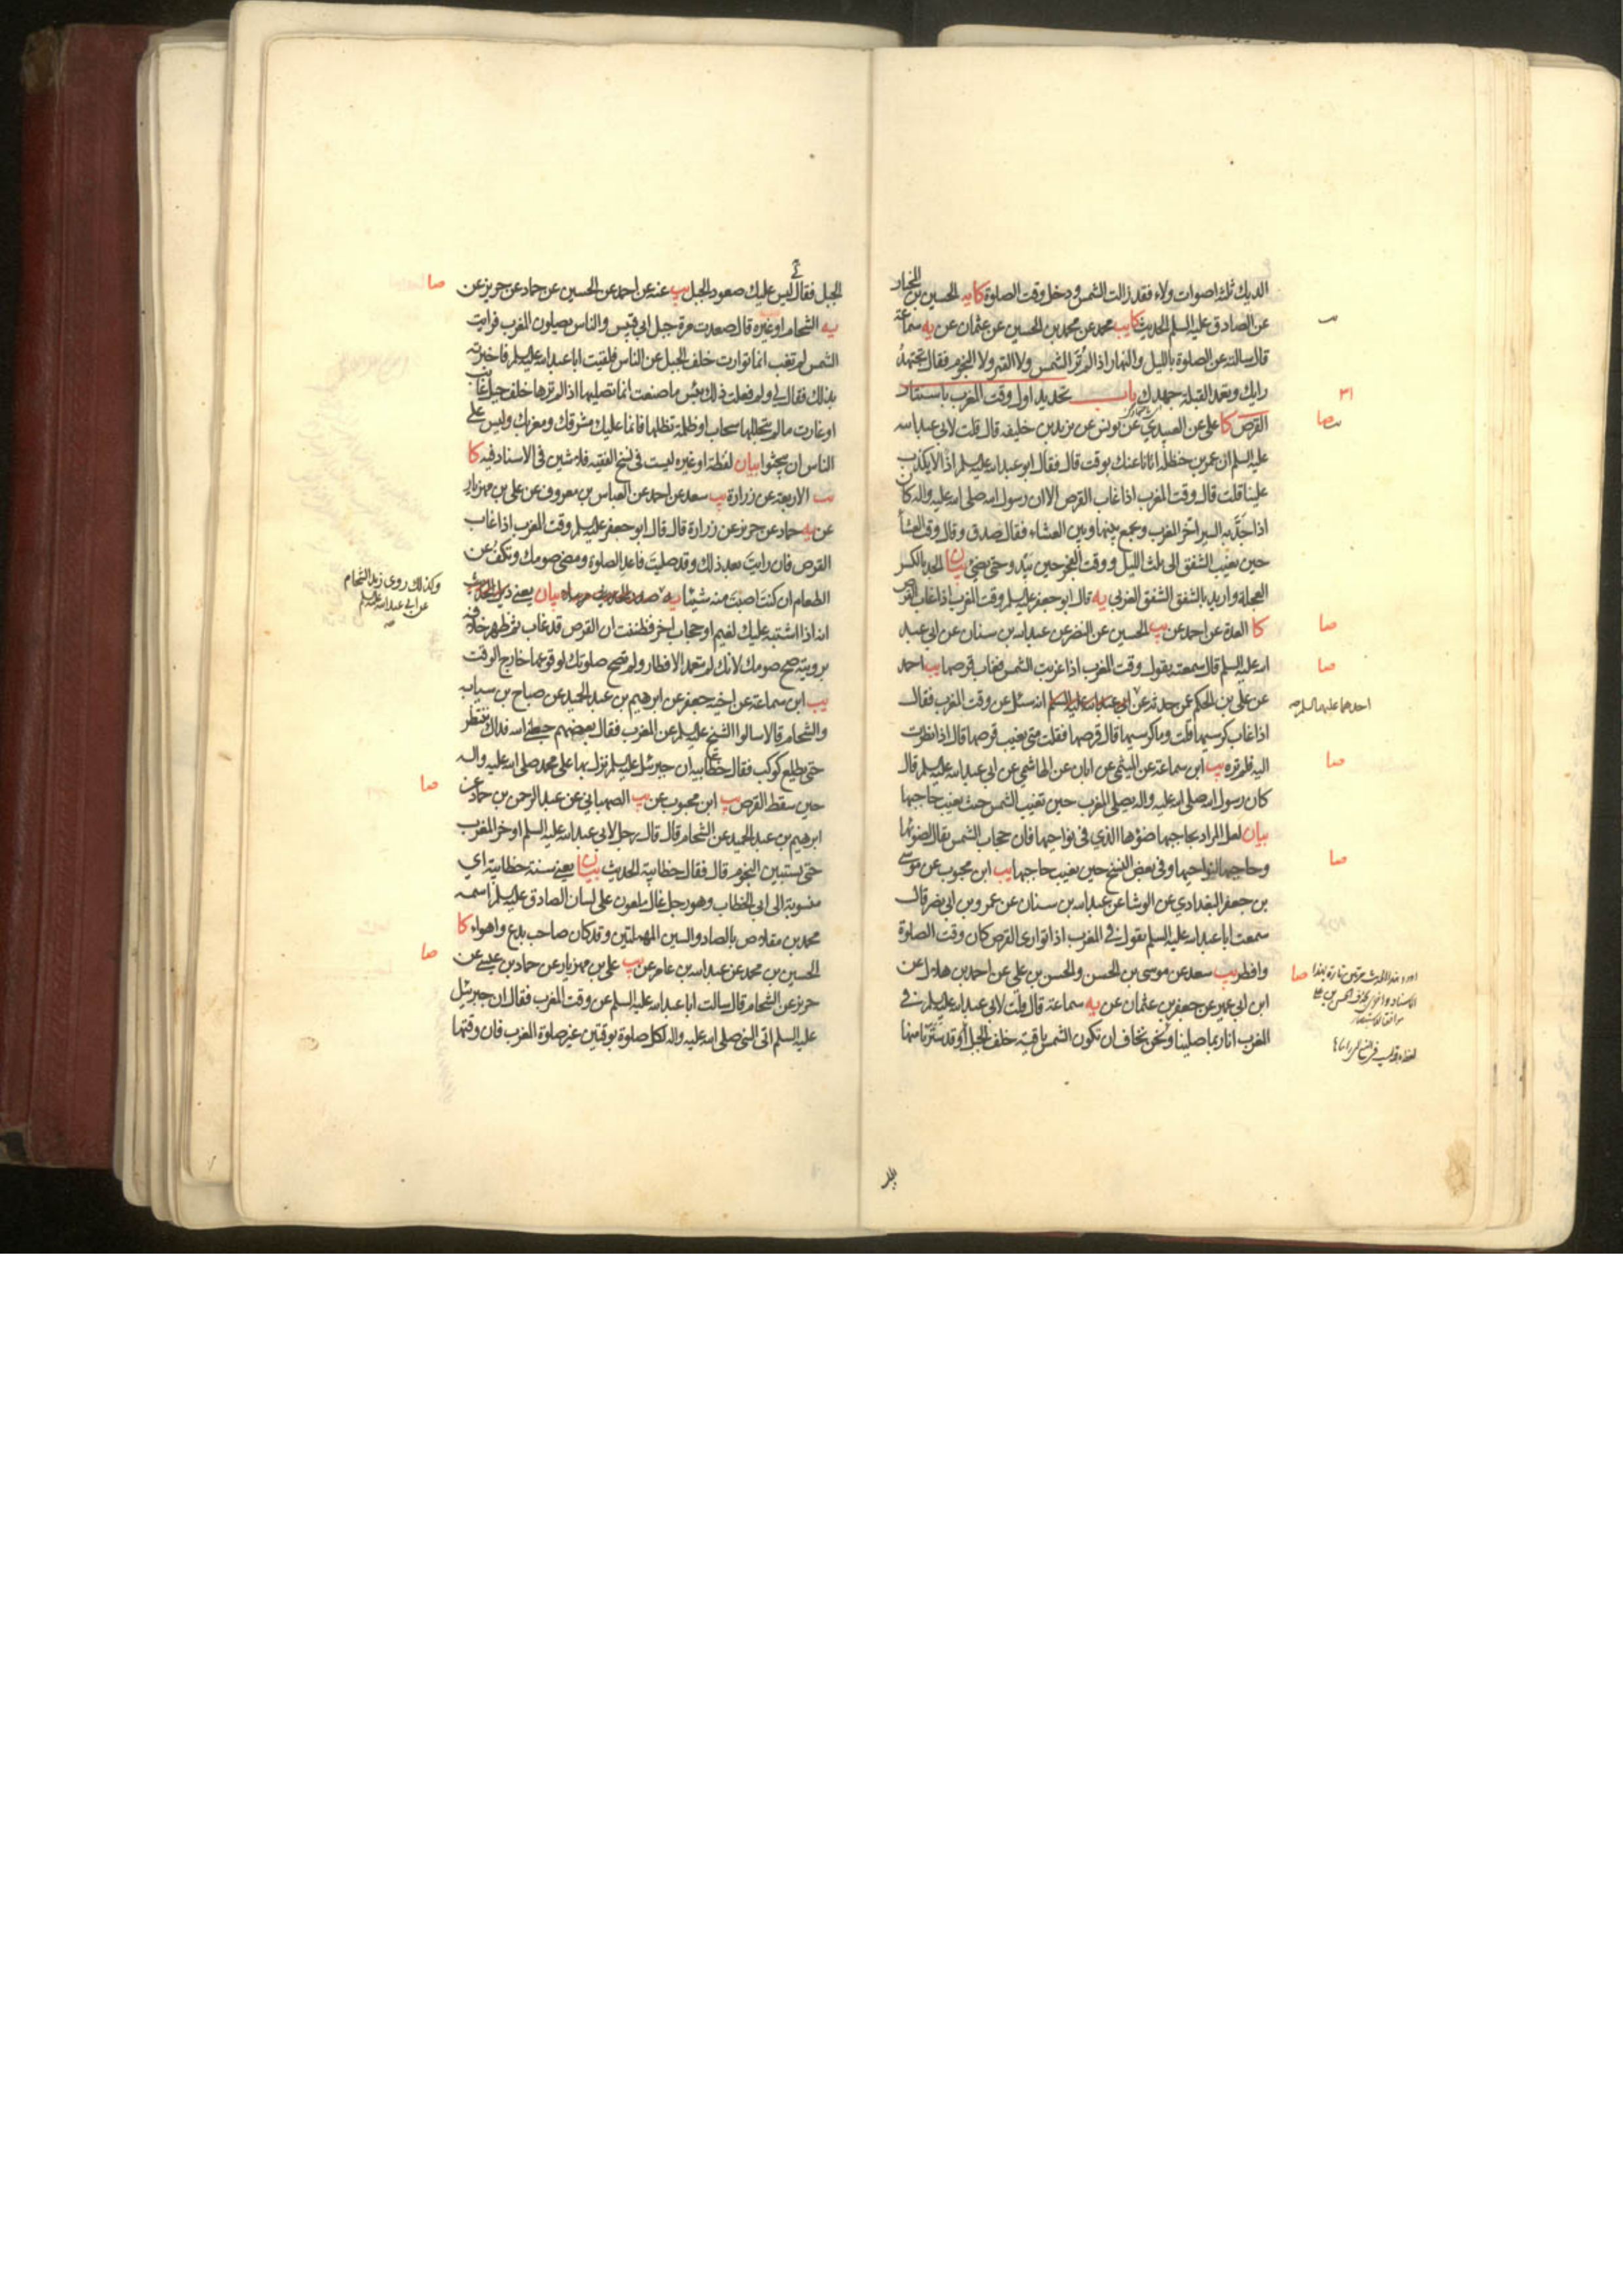 الديك ثلثة اصوات ولاء فقد زالت الشمس ودخل وقت الصلوة كا يه الحسين بن المختار
عن الصادق عليه السلم الحديث كا يب محمد عن محمد بن الحسين عن عثمان عن يه سماعة
قال سالته عن الصلوة بالليل والنهار اذا لم تر الشمس ولا القمر ولا النجوم فقال تجتهد
رايك وتعمد القبلة جهدك باب تحديد اول وقت المغرب باستتار
القرص كا علي عن العبيدي عن يونس عن يزيد بن خليفه قال قلت لابي عبد الله
عليه السلم ان عمر بن حنظلة اتانا عنك بوقت قال فقال ابو عبد الله عليه السلم اذا لا يكذب
علينا قلت قال وقت المغرب اذا غاب القرص الا ان رسول الله صلى الله عليه واله كان
اذا جد به السير اخر المغرب ويجمع بينها وبين العشاء فقال صدق وقال وقت العشاء
حين يغيب الشفق الى ثلث الليل ووقت الفجر حين يبدو حتى يضئ بيان الجد بالكسر
العجلة واريد بالشفق الشفق الغربي يه قال ابو جعفر عليه السلم وقت المغرب اذا غاب القرص
كا العدة عن احمد عن يب الحسين عن النضر عن عبد الله بن سنان عن ابي عبد
الله عليه السلم قال سمعته يقول وقت المغرب اذا غربت الشمس فغاب قرصها يب احمد
عن علي بن الحكم عمن حدثه عن ابي عبد الله عليه السلم انه سئل عن وقت المغرب فقال
احدهما عليهما السلم صح
اذا غاب كرسيها قلت وما كرسيها قال قرصها فقلت متى يغيب قرصها قال اذا نظرت
اليه فلم تره يب ابن سماعة عن الميثمي عن ابان عن الهاشمي عن ابي عبد الله عليه السلم قال
كان رسول الله صلى الله عليه واله يصلي المغرب حين تغيب الشمس حيث يغيب حاجبها
بيان لعل المراد بحاجبها ضوؤها الذي في نواحيها فان حجاب الشمس يقال لضوئها
وحاجبها لنواحيها وفي بعض النسخ حين يغيب حاجبها يب ابن محبوب عن موسى
بن جعفر البغدادي عن الوشا عن عبد الله بن سنان عن عمرو بن ابي نصر قال
سمعت ابا عبد الله عليه السلم يقول في المغرب اذا توارى القرص كان وقت الصلوة
وافطر يب سعد عن موسى بن الحسن والحسن بن علي عن احمد بن هلال عن
ابن ابي عمير عن جعفر بن عثمان عن يه سماعة قال قلت لابي عبد الله عليه السلم في
المغرب انا ربما صلينا ونحن نخاف ان تكون الشمس باقية خلف الجبل او قد سترنا منها
الجبل فقال لي ليس عليك صعود الجبل يب عنه عن احمد عن الحسين عن حماد عن حريز عن
يه الشحام او غيره قال صعدت مرة جبل ابي قبيس والناس يصلون المغرب فرايت
الشمس لم تغب انما توارت خلف الجبل عن الناس فلقيت ابا عبد الله عليه السلم فاخبرته
بذلك فقال لي ولم فعلت ذلك بئس ما صنعت انما تصليها اذا لم ترها خلف جبل غابت
او غارت ما لم يتجللها سحاب او ظلمة تظلها فانما عليك مشرقك ومغربك وليس على
الناس ان يبحثوا بيان لفظة او غيره ليست في نسخ الفقيه فلا شين في الاسناد فيه كا
يب الاربعة عن زرارة يب سعد عن احمد عن العباس بن معروف عن علي بن مهزيار
عن يه حماد عن حريز عن زرارة قال قال ابو جعفر عليه السلم وقت المغرب اذا غاب
القرص فان رايت بعد ذلك وقد صليت فاعد الصلوة ومضى صومك وتكف عن
الطعام ان كنت اصبت منه شيئا يه
بيان يعني
وكذلك روى زيد الشحام
عن ابي عبد الله عليه السلم
صح
انه اذا اشتبه عليك لغيم او حجاب اخر فظننت ان القرص قد غاب ثم ظهر خلافه
برويته صح صومك لانك لم تتعمد الافطار ولم تصح صلوتك لوقوعها خارج الوقت
يب ابن سماعة عن اخيه جعفر عن ابرهيم بن عبد الحميد عن صباح بن سيابه
والشحام قالا سالوا الشيخ عليه السلم عن المغرب فقال بعضهم جعلني الله فداك ننتظر
حتى يطلع كوكب فقال خطابية ان جبرئيل عليه السلم نزل بها على محمد صلى الله عليه واله
حين سقط القرص يب ابن محبوب عن يب الصهباني عن عبد الرحمن بن حماد عن
ابرهيم بن عبد الحميد عن الشحام قال قال رجل لابي عبد الله عليه السلم اوخر المغرب
حتى يستبين النجوم قال فقال خطابية الحديث بيان يعني سنة خطابية اي
منسوبة الى ابي الخطاب وهو رجل غال ملعون على لسان الصادق عليه السلم اسمه
محمد بن مقلاص بالصاد والسين المهملتين وقد كان صاحب بدع واهواء كا
الحسين بن محمد عن عبد الله بن عامر عن يب علي بن مهزيار عن حماد بن عيسى عن
حريز عن الشحام قال سالت ابا عبد الله عليه السلم عن وقت المغرب فقال ان جبرئيل
عليه السلم اتى النبي صلى الله عليه واله لكل صلوة بوقتين غير صلوة المغرب فان وقتها